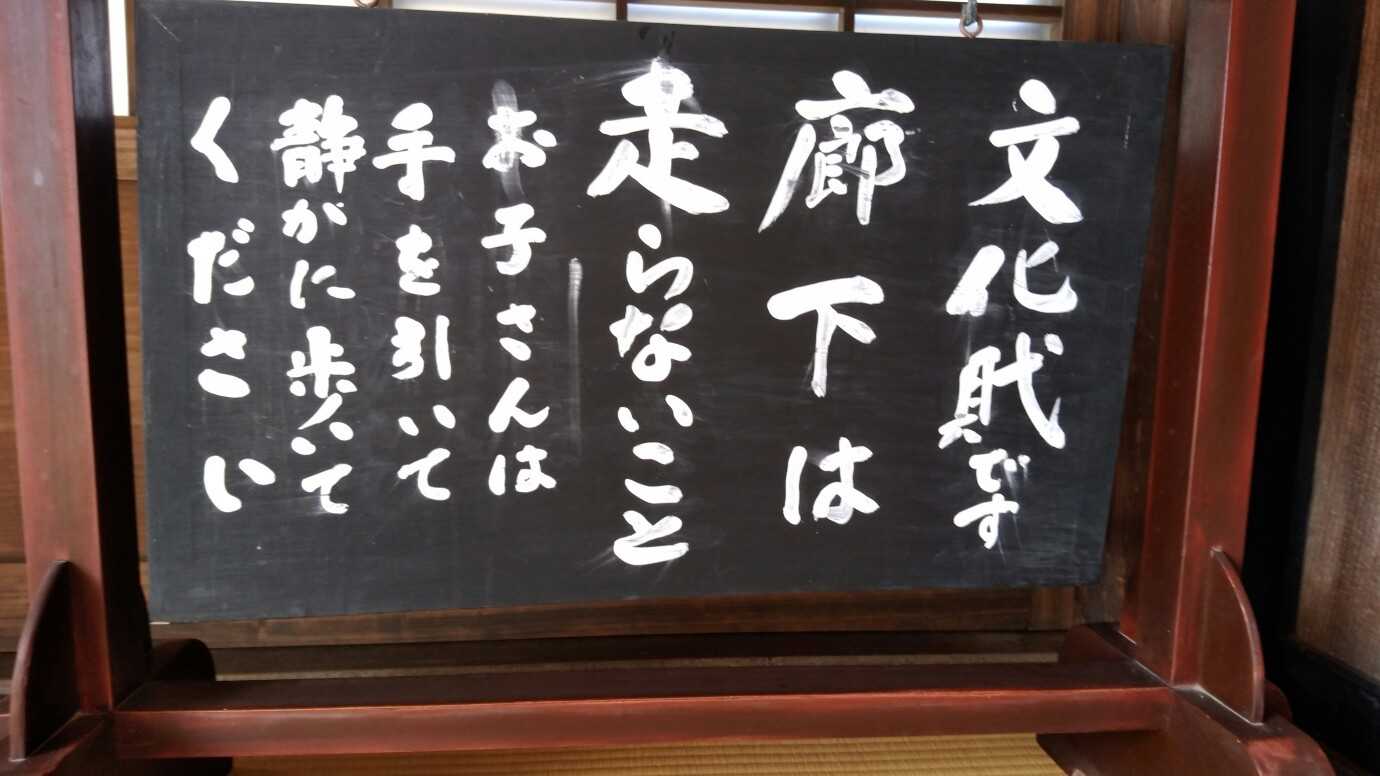 文化財です
廊下は
走らないこと
お子さんは
手を引いて
静かに歩いて
ください